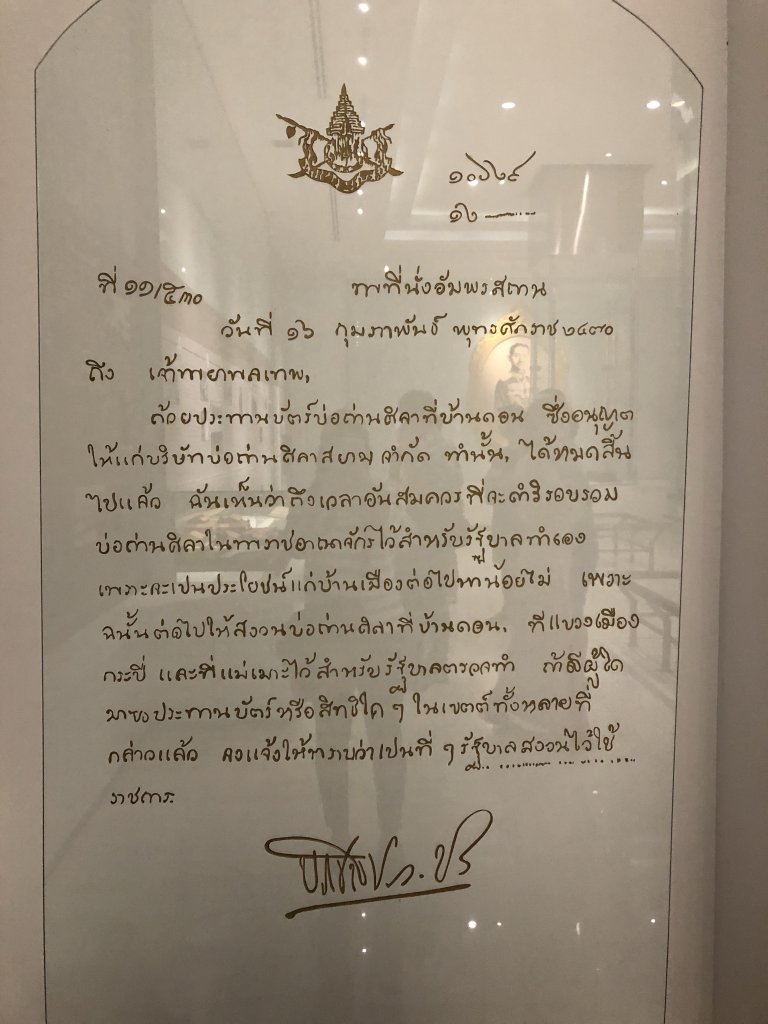 ๑๐๖๒๙
๑๖
ที่ ๑๑/๕๓๐ พระที่นั่งอัมพรสถาน
วันที่ ๑๖ กุมภาพันธ์ พุทธศักราช ๒๔๗๐
ถึง เจ้าพระยาพลเทพ,
ด้วยประทานบัตร์บ่อถ่านศิลาที่บ้านดอน ซึ่งอนุญาต
ให้แก่บริษัทบ่อถ่านศิลาสยาม จำกัด ทำนั้น, ได้หมดสิ้น
ไปแล้ว ฉันเห็นว่าถึงเวลาอันสมควรที่จะดำริรอบรวม
บ่อถ่านศิลาในพระราชอาณาจักร์ไว้สำหรับรัฐบาลทำเอง
เพราะจะเปนประโยชน์แก่บ้านเมืองต่อไปหาน้อยไม่ เพราะ
ฉนั้นต่อไปให้สงวนบ่อถ่านศิลาที่บ้านดอน, ที่แขวงเมือง
กระบี่ และที่แม่เมาะไว้สำหรับรัฐบาลตรวจทำ ถ้ามีผู้ใด
มาขอประทานบัตร์หรือสิทธิใด ๆ ในเขตต์ทั้งหลายที่
กล่าวแล้ว จงแจ้งให้ทราบว่าเปนที่ ๆ รัฐบาลสงวนไว้ใช้
ราชการ
ประชาธิปก. ปร